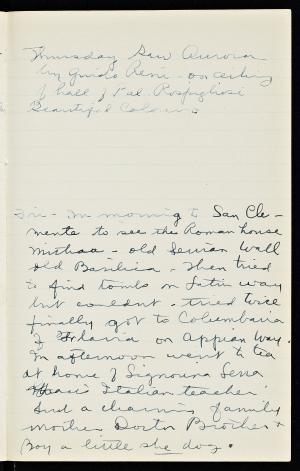 Thursday Saw Aurora
by Guido Reni - on ceiling
of hall of Pal. Rospigliosi
Beautiful Colours
Fri - In morning to San Cle-
mente to see the Roman house
Mithra - old Servian Wall
old Basilica - then tried
to find tombs on Latin way
but couldn't - tried twice
finally got to Columbaria
of on Appian Way.
In afternoon went to tea
at home of Signorina Serra
Italian teacher
Such a charming family
mother Doctor Brother +
Boy a little she dog.